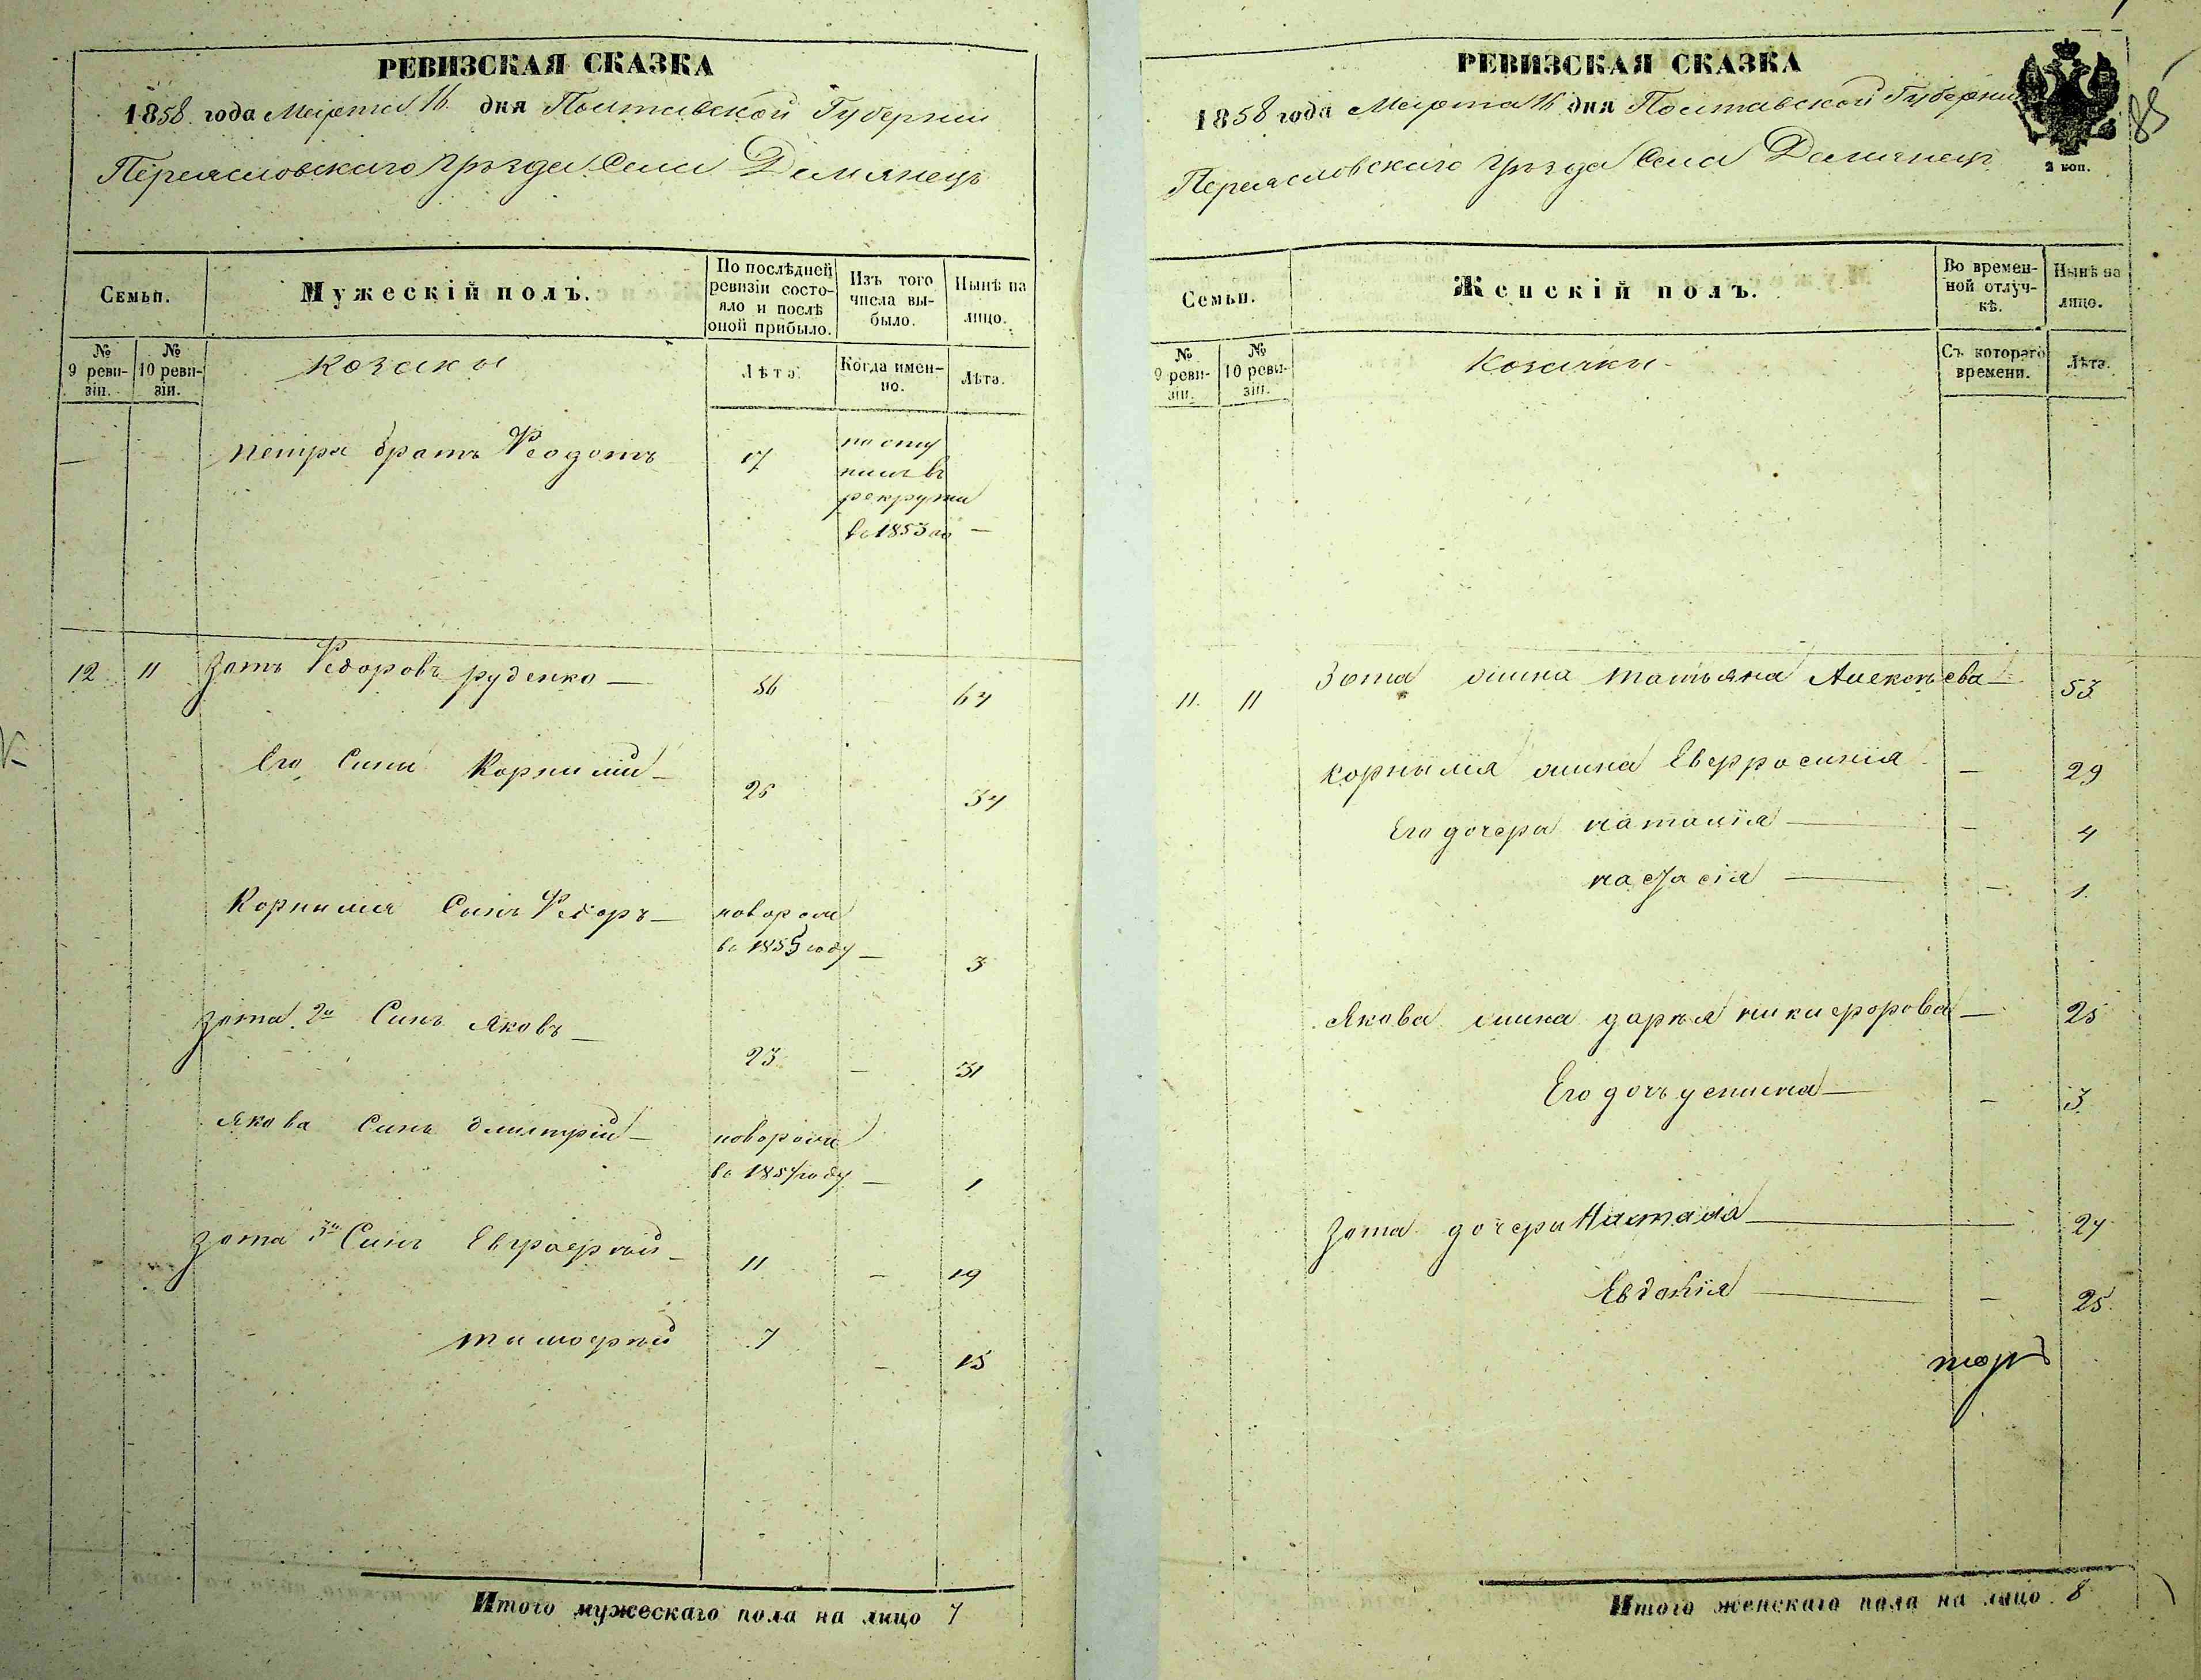 РЕВИЗСКАЯ СКАЗКА
1858 года Марта 16 дня Полтавской Губернии
Переясловскаго Уѣзда Села Демянецъ
Семьи.
Мужескій полъ.
По послѣдней ревизіи состояло и послѣ оной прибыло.
Изъ того числа выбыло.
Нынѣ на лицо.
№ 9 ревизіи.
№ 10 ревизіи.
Козаки
Лѣта.
Когда именно.
Лѣта.
— — Петра братъ Феодотъ 17 посту
пилъ въ
рекруты
въ 1853 го —
12 11 Зотъ Федоровъ руденко — 56 64
Его Сини Корнилій — 26 34
Корнилія Синъ Федоръ — новорож
въ 1855 году — 3
Зота 2й Синъ Яковъ — 23 — 31
Якова Синъ Дмитрій — новорож
въ 1857 году — 1
Зота 3й Синъ Евграфій — 11 — 19
тимофѣй 7 — 15
Итого мужескаго пола на лицо 7
РЕВИЗСКАЯ СКАЗКА
85
1858 года Марта 16 дня Полтавской Губернии
2 коп.
Переясловскаго Уѣзда Села Демянецъ
Семьи.
Женскій полъ.
Во временной отлучкѣ.
Нынѣ на лицо.
№ 9 ревизіи.
№ 10 ревизіи.
Козачки
Съ котораго времени.
Лѣта.
11 11 Зота жина татьяна Алексѣева — 53
корнылія жина Евфросинія — 29
Его дочери наталія — — 4
настасія — — 1
Якова жина дарья никифорова — 25
Его дочь устина — — 3
Зота дочери Наталя — 27
Евдокія — — 25
Итого женскаго пола на лицо 8